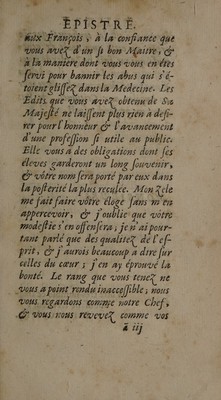 EPISTRE.
aux François, à la confiance que
vous avez d'un si bon Maitre, &
à la maniere dont vous vous en étes
servi pour bannir les abus qui s'é-
toient glissez dans la Medecine. Les
Edits que vous avez obtenu de Sa
Majesté ne laissent plus rien à desi-
rer pour l'honneur & l'avancement
d'une profession si utile au public.
Elle vous a des obligations dont ses
éleves garderont un long souvenir,
& vôtre nom sera porté par eux dans
la posterité la plus reculée. Mon zele
me fait faire vôtre éloge sans m'en
appercevoir, & j'oublie que vôtre
modestie s'en offensera; je n'ai pour-
tant parlé que des qualitez de l'es-
prit, & j'aurois beaucoup à dire sur
celles du cœur; j'en ay éprouvé la
bonté. Le rang que vous tenez ne
vous a point rendu inaccessible, nous
vous regardons comme notre Chef,
& vous nous revevez comme vos
ã iij